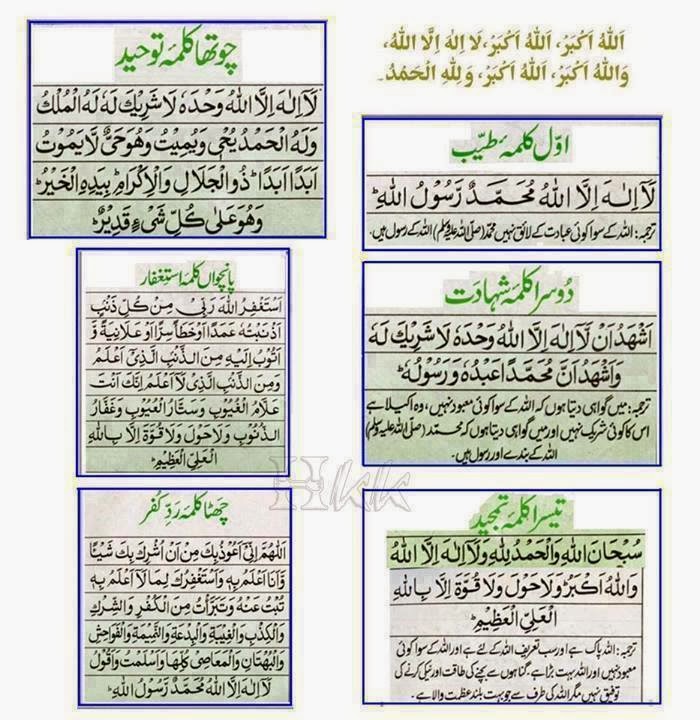 اَللهُ اَكْبَرُ، اَللهُ اَكْبَرُ، لَا اِلٰهَ اِلَّا اللهُ،
وَاللهُ اَكْبَرُ، اَللهُ اَكْبَرُ، وَلِلّٰهِ الْحَمْدُ۔
اوّل کلمہ طیّب
لَآ اِلٰهَ اِلَّا اللهُ مُحَمَّدٌ رَّسُوْلُ اللهِ ؕ
ترجمہ: اللہ کے سوا کوئی عبادت کے لائق نہیں محمّد (صلی اللہ علیہ وسلم) اللہ کے رسول ہیں۔
دُوسرا کلمۂ شہادت
اَشْهَدُ اَنْ لَّآ اِلٰهَ اِلَّا اللهُ وَحْدَهٗ لَا شَرِيْكَ لَهٗ
وَاَشْهَدُ اَنَّ مُحَمَّدًا عَبْدُهٗ وَرَسُوْلُهٗ ؕ
ترجمہ: میں گواہی دیتا ہوں کہ اللہ کے سوا کوئی معبود نہیں، وہ اکیلا ہے
اس کا کوئی شریک نہیں اور میں گواہی دیتا ہوں کہ محمّد (صلی اللہ علیہ وسلم)
اللہ کے بندے اور رسول ہیں۔
تیسرا کلمۂ تمجید
سُبْحَانَ اللهِ وَالْحَمْدُ لِلّٰهِ وَلَآ اِلٰهَ اِلَّا اللهُ
وَاللهُ اَكْبَرُ ؕ وَلَا حَوْلَ وَلَا قُوَّةَ اِلَّا بِاللهِ
الْعَلِيِّ الْعَظِيْمِ ؕ
ترجمہ: اللہ پاک ہے اور سب تعریف اللہ کے لئے ہے اور اللہ کے سوا کوئی
معبود نہیں اور اللہ بہت بڑا ہے۔ گناہوں سے بچنے کی طاقت اور نیکی کرنے کی
توفیق نہیں مگر اللہ کی طرف سے جو بہت بلند عظمت والا ہے۔
چوتھا کلمۂ توحید
لَآ اِلٰهَ اِلَّا اللهُ وَحْدَهٗ لَا شَرِيْكَ لَهٗ لَهُ الْمُلْكُ
وَلَهُ الْحَمْدُ يُحْيٖ وَيُمِيْتُ وَهُوَ حَيٌّ لَّا يَمُوْتُ
اَبَدًا اَبَدًا ؕ ذُو الْجَلَالِ وَالْاِكْرَامِ ؕ بِيَدِهِ الْخَيْرُ ؕ
وَهُوَ عَلٰى كُلِّ شَيْءٍ قَدِيْرٌ ؕ
پانچواں کلمہ استغفار
اَسْتَغْفِرُ اللهَ رَبِّيْ مِنْ كُلِّ ذَنْۢبٍ
اَذْنَبْتُهٗ عَمَدًا اَوْ خَطَأً سِرًّا اَوْ عَلَانِيَةً وَّ
اَتُوْبُ اِلَيْهِ مِنَ الذَّنْۢبِ الَّذِيْٓ اَعْلَمُ
وَمِنَ الذَّنْۢبِ الَّذِيْ لَآ اَعْلَمُ اِنَّكَ اَنْتَ
عَلَّامُ الْغُيُوْبِ وَسَتَّارُ الْعُيُوْبِ وَغَفَّارُ
الذُّنُوْبِ وَلَا حَوْلَ وَلَا قُوَّةَ اِلَّا بِاللهِ
الْعَلِيِّ الْعَظِيْمِ ؕ
چھٹا کلمہ ردِّ کفر
اَللّٰهُمَّ اِنِّيْٓ اَعُوْذُ بِكَ مِنْ اَنْ اُشْرِكَ بِكَ شَيْئًا
وَّاَنَا اَعْلَمُ بِهٖ وَاَسْتَغْفِرُكَ لِمَا لَآ اَعْلَمُ بِهٖ
تُبْتُ عَنْهُ وَتَبَرَّأْتُ مِنَ الْكُفْرِ وَالشِّرْكِ
وَالْكِذْبِ وَالْغِيْبَةِ وَالْبِدْعَةِ وَالنَّمِيْمَةِ وَالْفَوَاحِشِ
وَالْبُهْتَانِ وَالْمَعَاصِيْ كُلِّهَا وَاَسْلَمْتُ وَاَقُوْلُ
لَآ اِلٰهَ اِلَّا اللهُ مُحَمَّدٌ رَّسُوْلُ اللهِ ؕ
Hkk